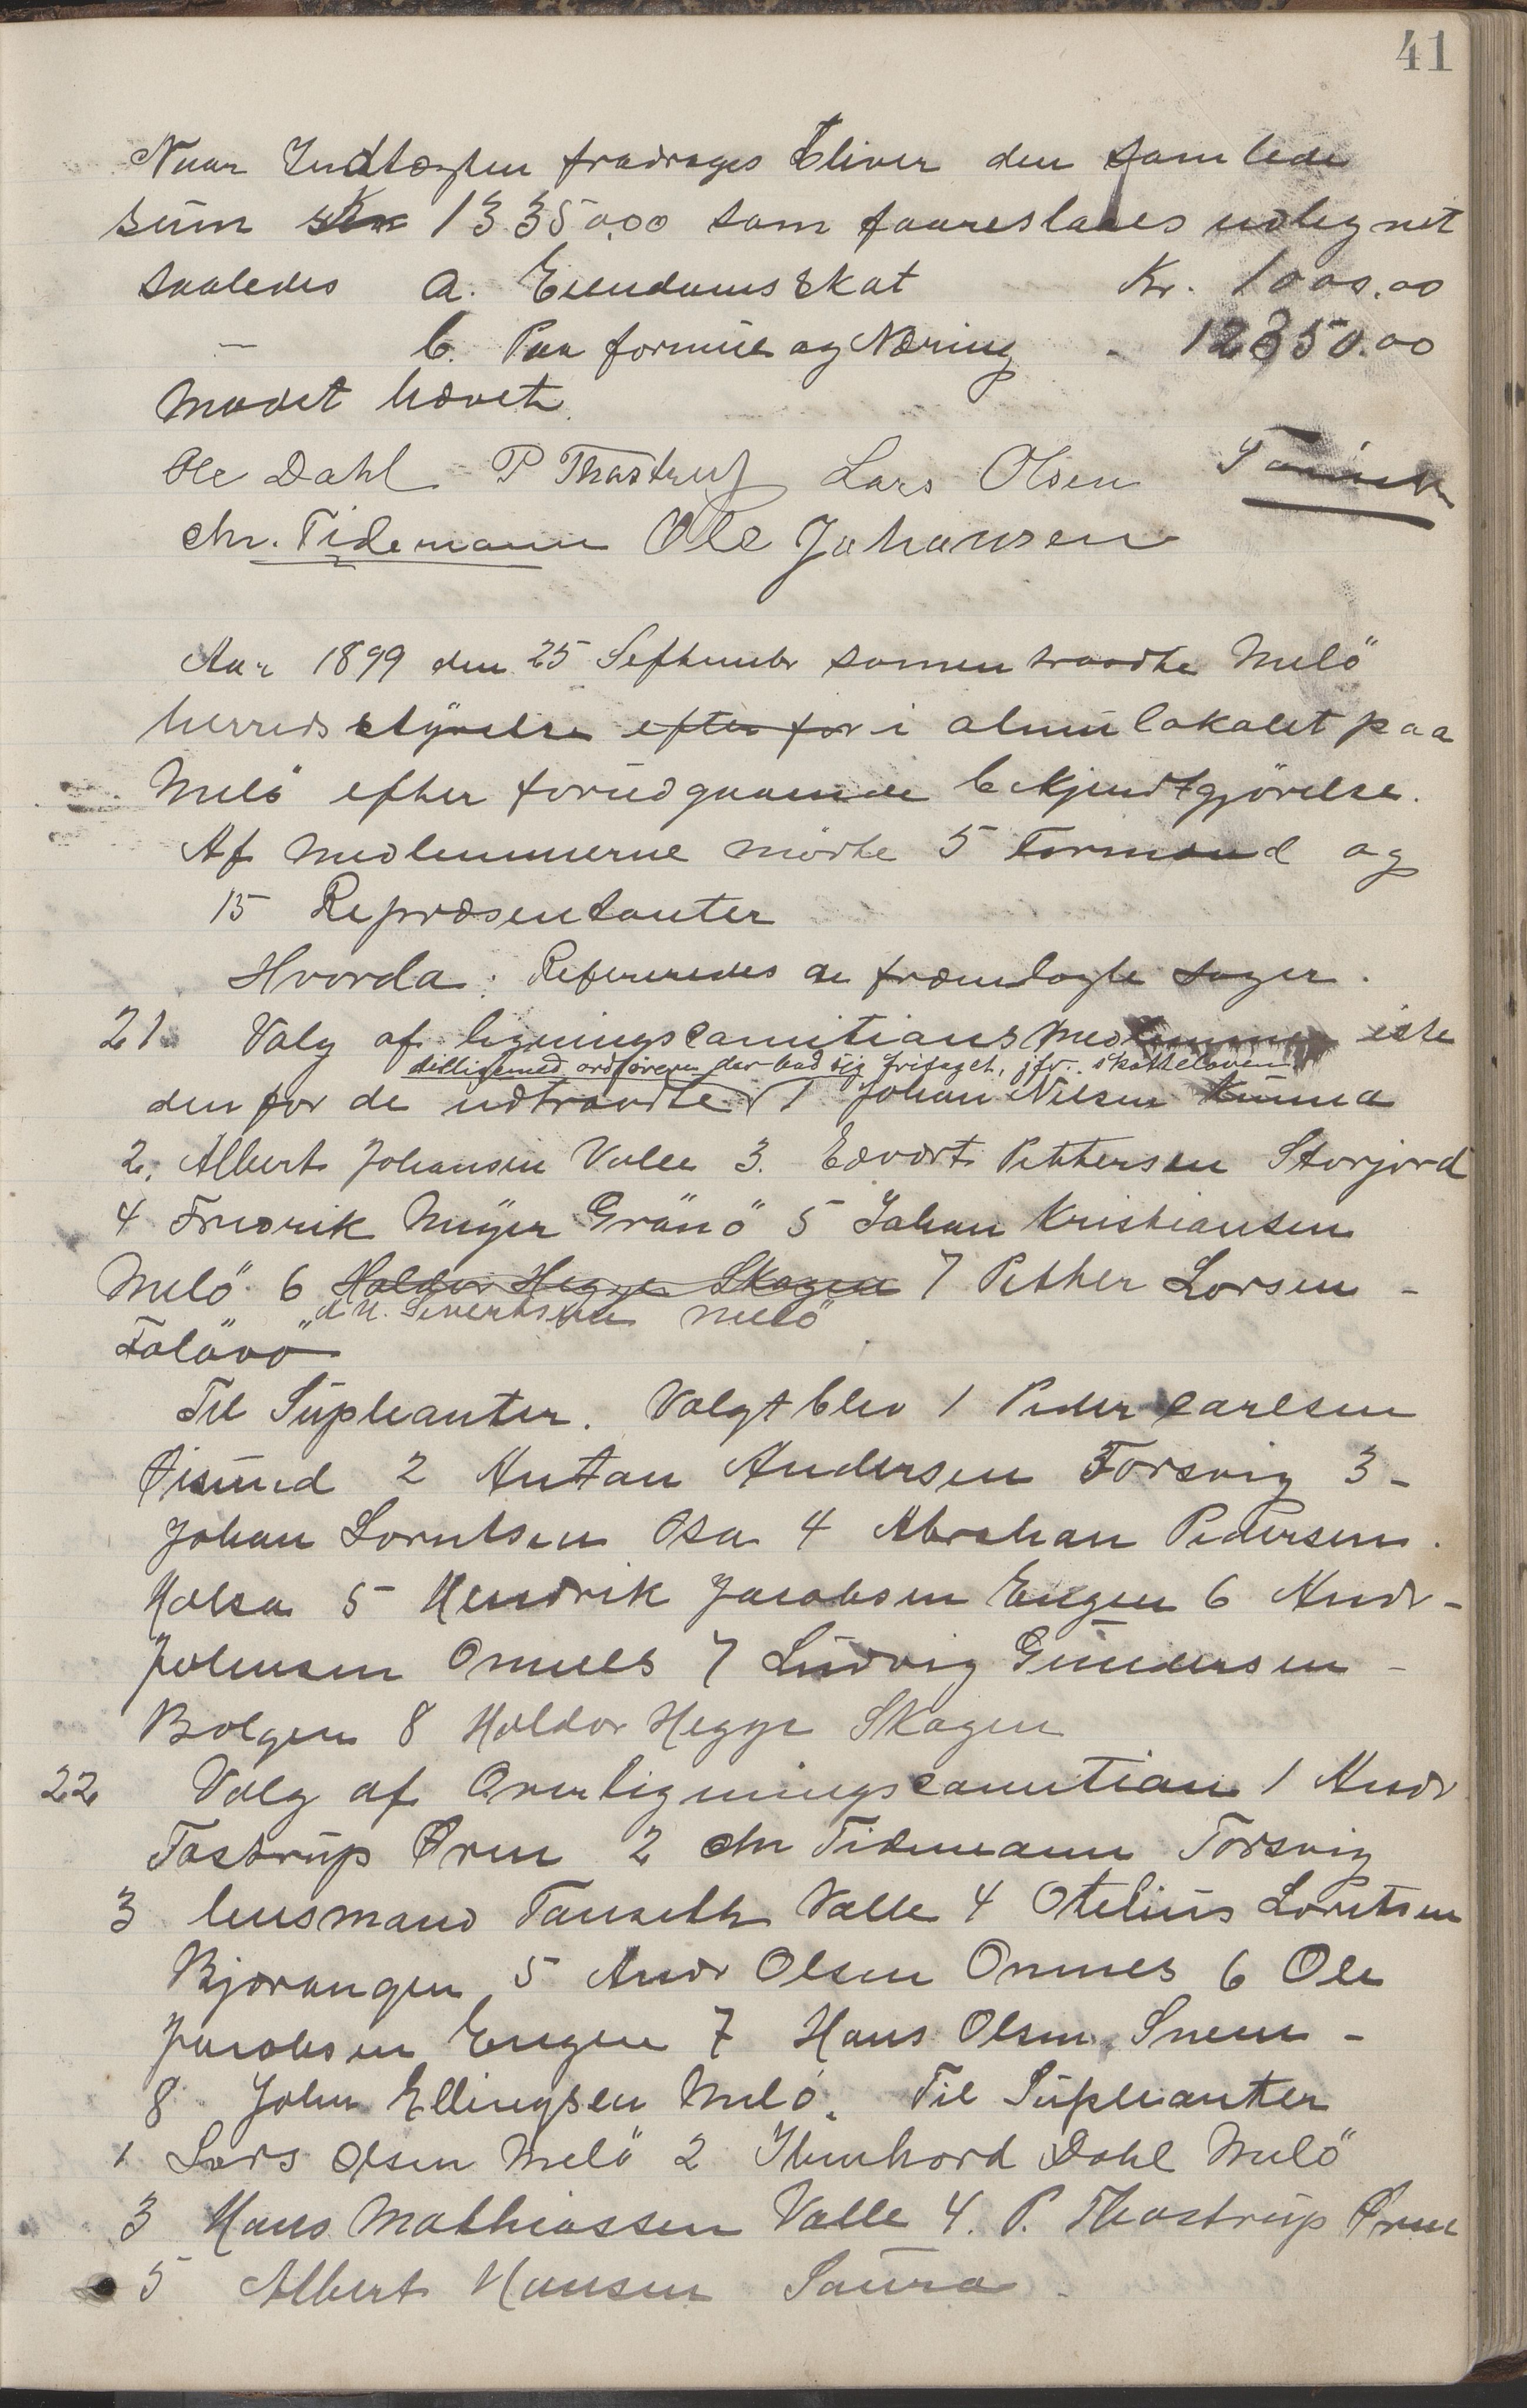 41
Naar Indtægten fradrages bliver den samlede
sum Kr 13350,00 som foareslaaes udlignet
saaledes a. Eiendomsskat Kr. 1000.00
– b. Paa formue og Næring - 12350.00
Mødet hævet.
Ole Dahl P Thastrup Lars Olsen
Chr. Tidemann Ole Johansen
Aar 1899 den 25 September sammentraadte Melö
herredsstyrelse efter for i almulokalet paa
Melö efter forudgaaende bekjendtgjörelse.
Af Medlemmerne mödte 5 Formænd og
15 Repræsentanter
Hvorda: Refereredes de fræmlagte sager.
21. Valg af ligningscomitions Medlemmer iste
tilligemed ordföreren der bad sig fritaget, jfr. skatteloven
den for de udtraadte 1 Johan Nilsen Kunna
2. Albert Johansen Valle 3. Edvart Pettersen Storjord
4 Fredrik Meyer Grönö 5 Johan Kristiansen
Melö 6 Haldor Hegge Skagen 7 Petter Lorsen -
Sivertsen Melö
Falövö
Til Supleanter. Valgt blev 1 Peder Carlsen
Øisund 2 Antan Andersen Forsvig 3 -
Johan Lorntsen Osa 4 Abraham Pedersen.
Holsa 5 Hendrik Jacobsen Engen 6 Andr -
Johnsen Ornnes 7 Ludvig Gundersen -
Bolgen 8 Haldor Hegge Skagen
22 Valg af Overligningscomition 1 Andr
Tostrup Ørnes 2 Chr Tidemann Forsvig
3 lensmand Valle 4 Otelius Lorntsen
Bjærangen 5 Andr Olsen Ornnes 6 Ole
Jacobsen Engen 7 Hans Olsen Sneen -
8 John Ellingsen Melö. Til Supleanter
1 Lars Olsen Melö 2 Ihenhard Dahl Melö
3 Hans Mathiassen Valle 4. P. Thostrup Ørnes
5 Albert Hansen Saura